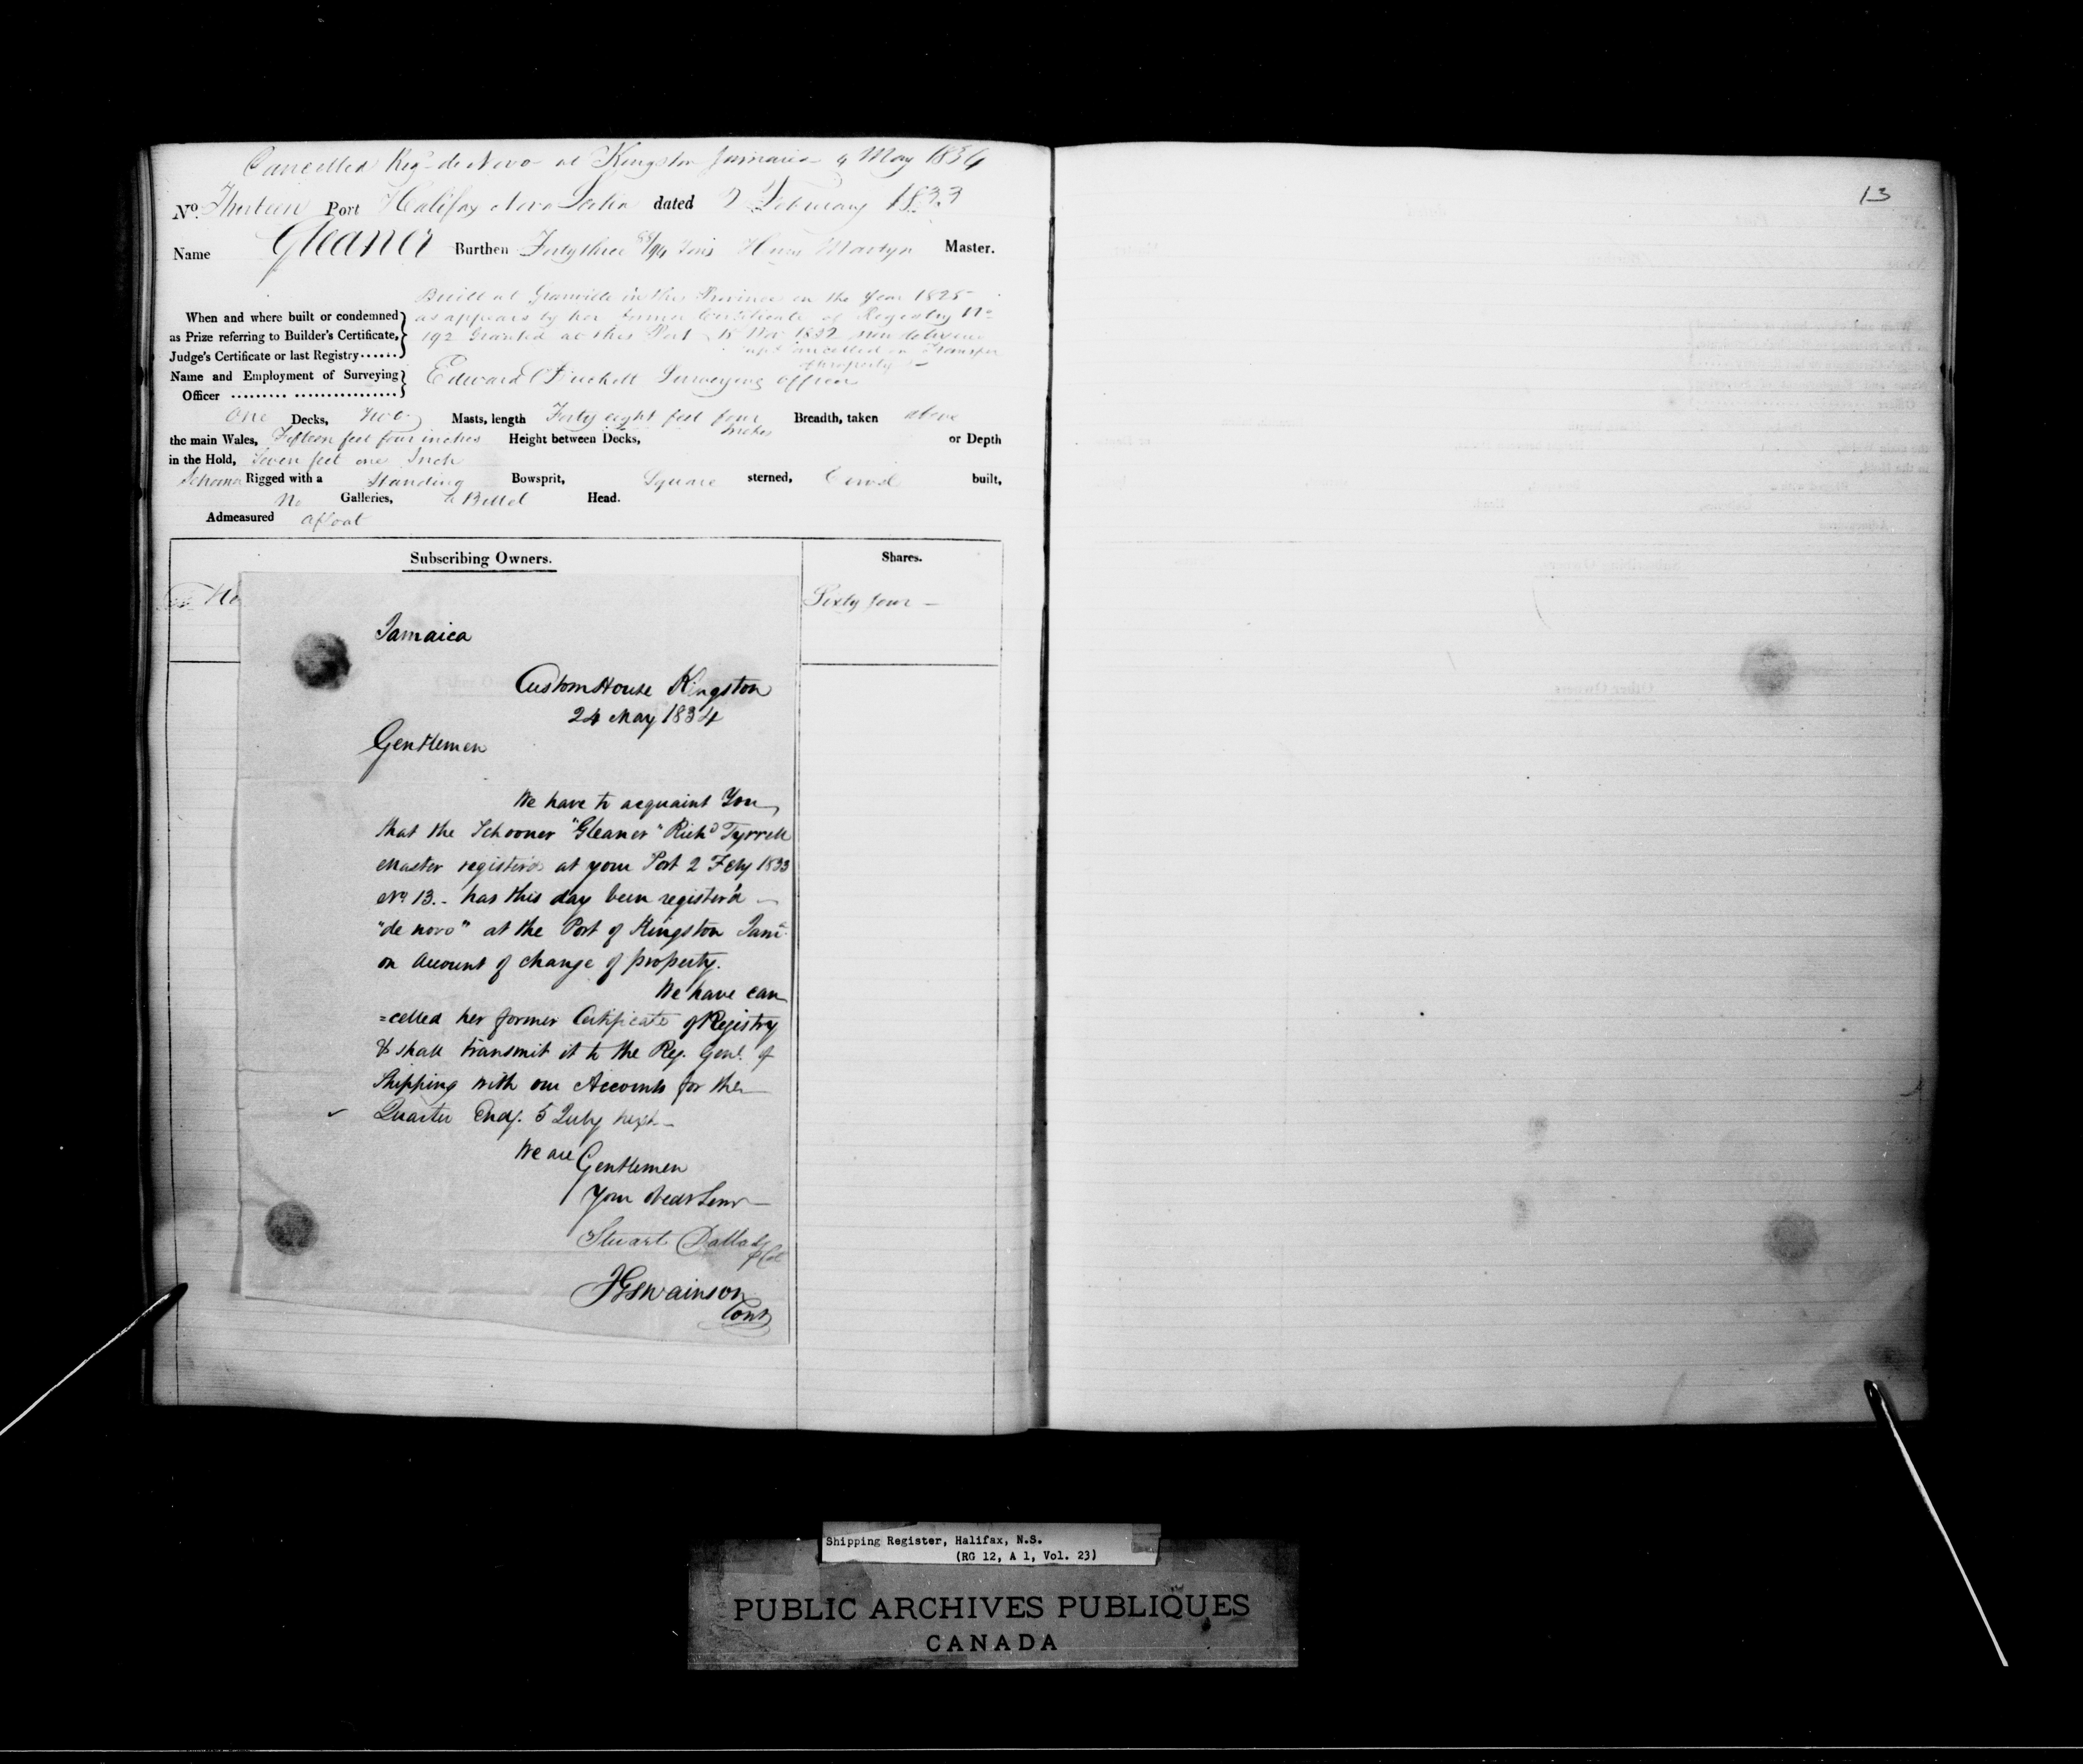 Cancelled Reg. de Novo at Kingston Jamaica May 1834
No. Thirteen Port Halifax Nova Scotia dated 2 February 1833
Name Gleaner Burthen Forty three /94 Tons Martyn Master.
Built at Granville in this Province in the Year 1825
When and where built or condemned as appears by her former Certificate of Registry No
as Prize referring to Builder's Certificate, 192 Granted at this Port 15 Nov 1832 now delivered
Judge's Certificate or last Registry...... up & cancelled on Transfer
of Property
Name and Employment of Surveying Edward Surveying Officer
Officer
One Decks, Two Masts, length Forty eight feet four inches Breadth, taken above
the main Wales, Fifteen feet four inches Height between Decks, or Depth
in the Hold, Seven feet one Inch
Schooner Rigged with a Standing Bowsprit, Square sterned, Carvel built,
No Galleries, a Billet Head.
Admeasured afloat
Subscribing Owners. Shares.
Sixty four
Jamaica
Custom House Kingston
24 May 1834
Gentlemen
We have to acquaint You
that the Schooner "Gleaner" Richd Tyrrell
Master register'd at your Port 2 Feby 1833
No 13. - has this day been register'd
"de novo" at the Port of Kingston Jama
on Account of change of property.
We have can
=celled her former Certificate of Registry
& shall transmit it to the Reg. Genl. of
Shipping with our Accounts for the
Quarter Endg. 5 July next
We are Gentlemen
Your Obedt Servts
Stuart Dallas
J G Swainson
Contr
13
Shipping Register, Halifax, N.S.
(RG 12, A 1, Vol. 23)
PUBLIC ARCHIVES PUBLIQUES
CANADA